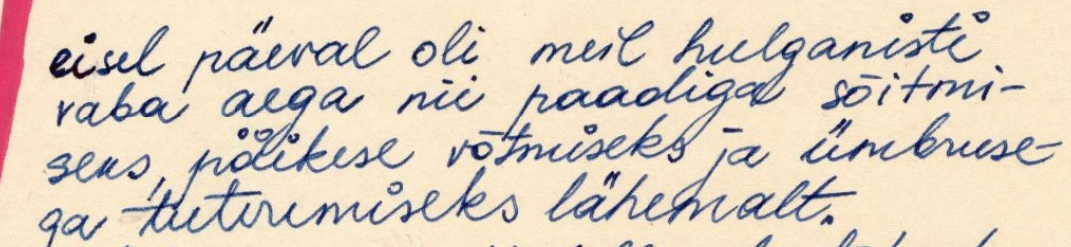 eisel päeval oli meil hulganisti
vaba aega nii paadiga sõitmi-
seks, päikese võtmiseks ja ümbruse-
ga tutvumiseks lähemalt.